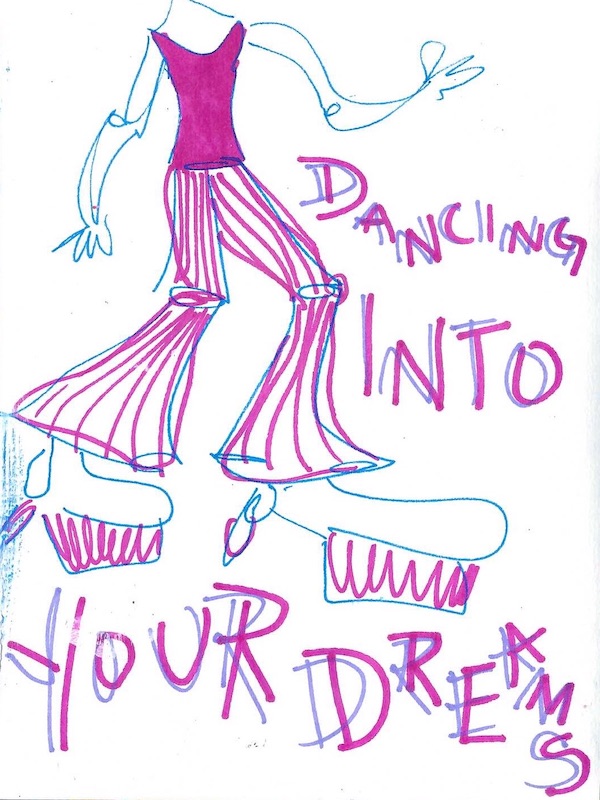 DANCING
INTO
YOUR DREAMS